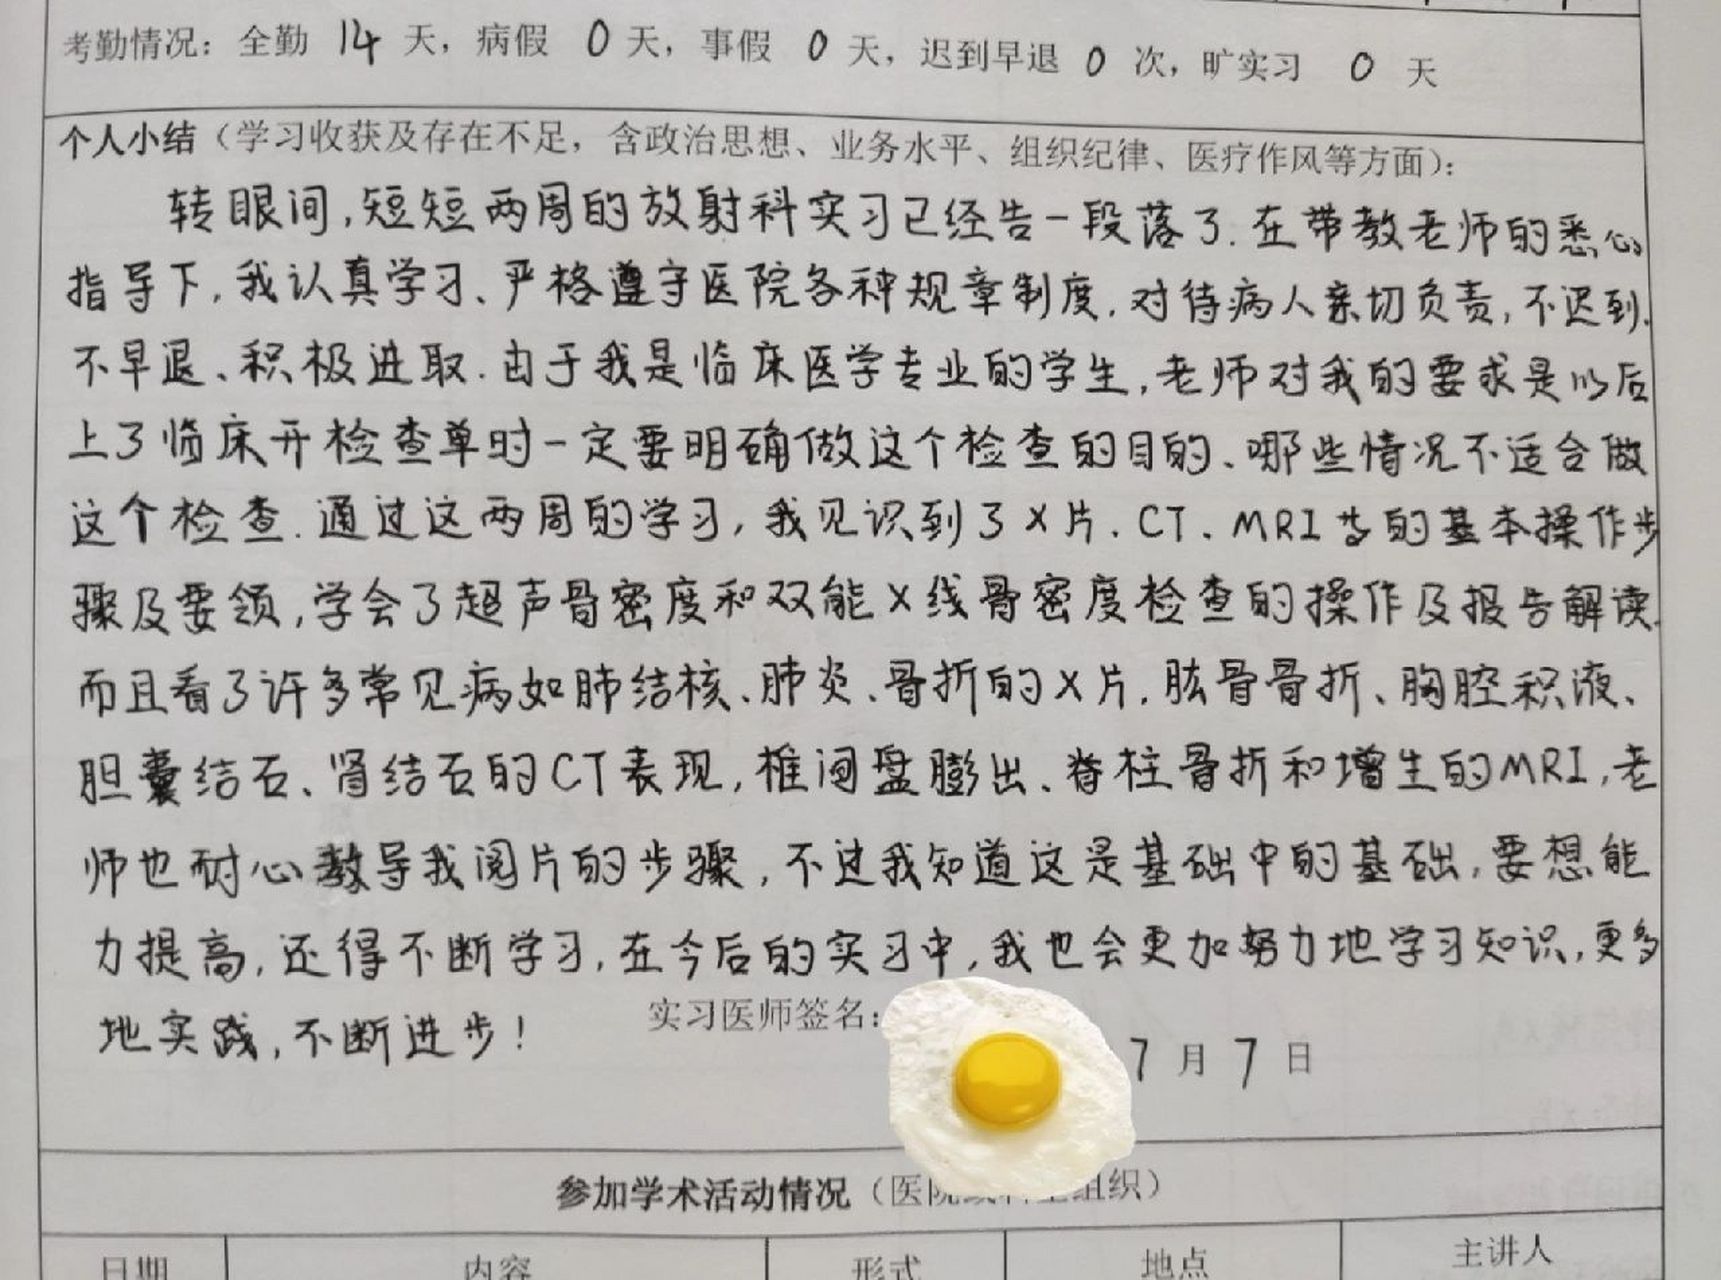 考勤情况：全勤 14 天，病假 0 天，事假 0 天，迟到早退 0 次，旷实习 0 天
个人小结（学习收获及存在不足，含政治思想、业务水平、组织纪律、医疗作风等方面）：
转眼间，短短两周的放射科实习已经告一段落了.在带教老师的悉心
指导下，我认真学习、严格遵守医院各种规章制度，对待病人亲切负责，不迟到.
不早退、积极进取.由于我是临床医学专业的学生，老师对我的要求是以后
上了临床开检查单时一定要明确做这个检查的目的、哪些情况不适合做
这个检查.通过这两周的学习，我见识到了X片、CT、MRI等的基本操作步
骤及要领，学会了超声骨密度和双能X线骨密度检查的操作及报告解读.
而且看了许多常见病如肺结核、肺炎、骨折的X片，肱骨骨折、胸腔积液、
胆囊结石、肾结石的CT表现，椎间盘膨出、脊柱骨折和增生的MRI，老
师也耐心教导我阅片的步骤，不过我知道这是基础中的基础，要想能
力提高，还得不断学习，在今后的实习中，我也会更加努力地学习知识，更多
地实践，不断进步！
实习医师签名： 7 月 7 日
参加学术活动情况（医院组织）
日期 内容 形式 地点 主讲人